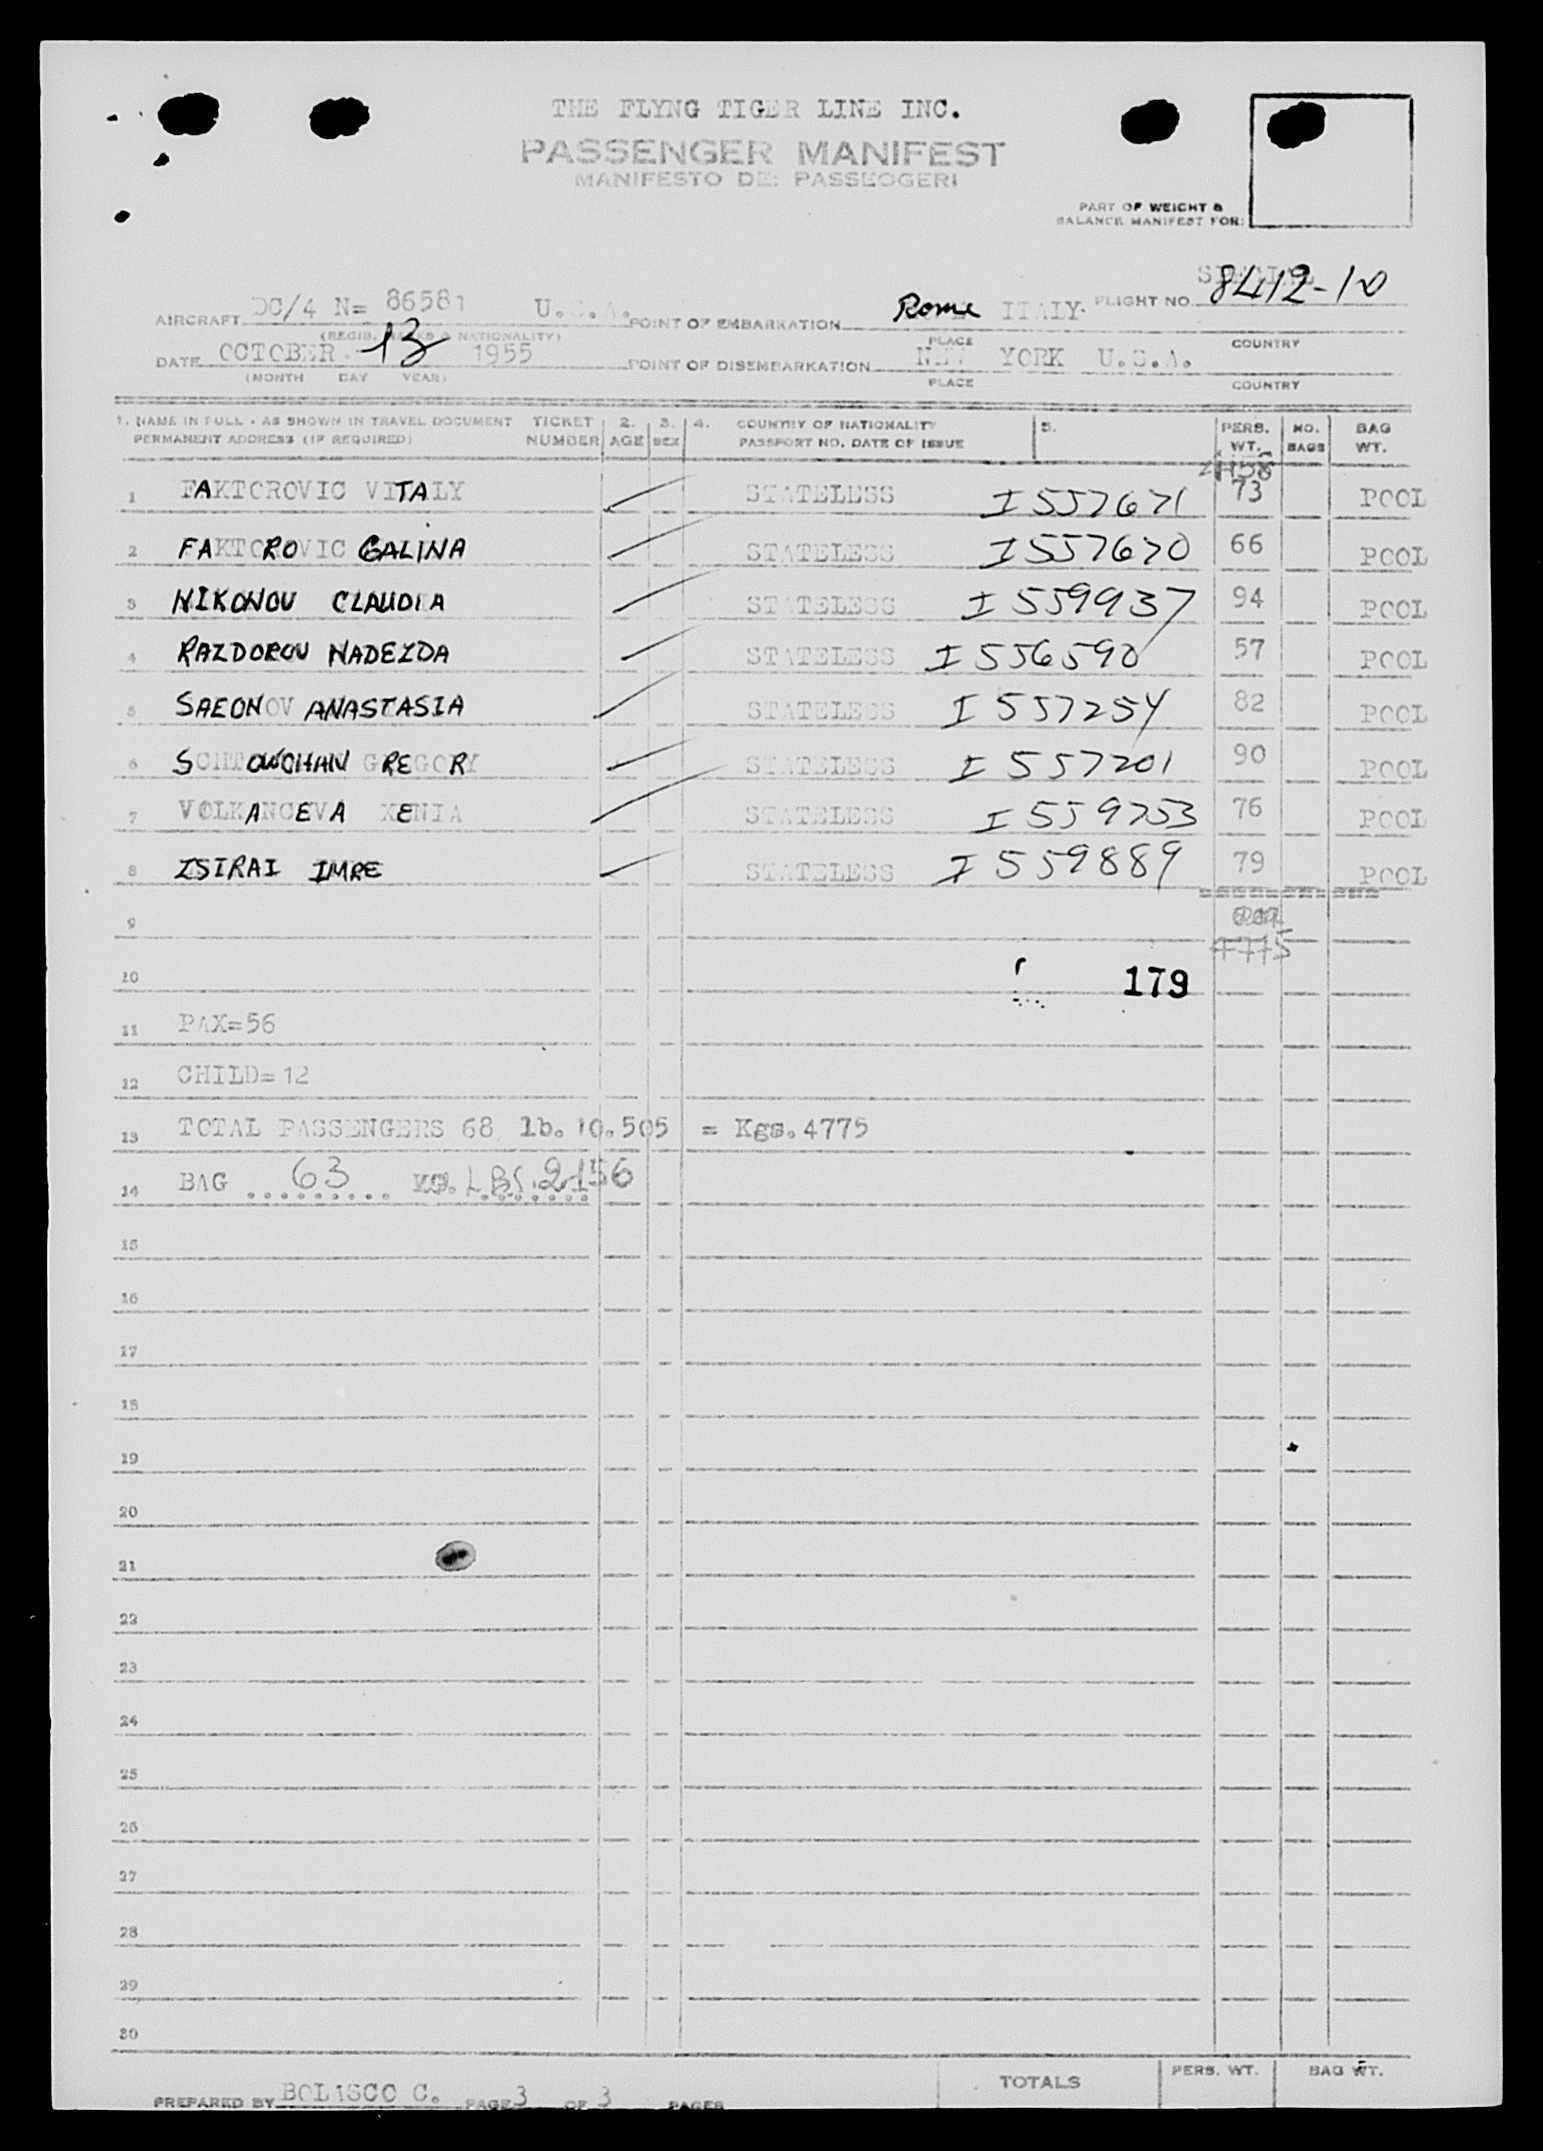 THE FLYNG TIGER LINE INC.
PASSENGER MANIFEST
MANIFESTO DEI PASSEOGERI
PART OF WEIGHT &
BALANCE MANIFEST FOR:
AIRCRAFT DC/4 N= 86581 U.S.A. POINT OF EMBARKATION Rome ITALY. FLIGHT NO. SPECIAL 8412-10
(REGIS. MARKS & NATIONALITY) PLACE COUNTRY
DATE OCTOBER 13 1955 POINT OF DISEMBARKATION NEW YORK U.S.A.
(MONTH DAY YEAR) PLACE COUNTRY
1. NAME IN FULL - AS SHOWN IN TRAVEL DOCUMENT TICKET 2. 3. 4. COUNTRY OF NATIONALITY 5. PERS. NO. BAG
PERMANENT ADDRESS (IF REQUIRED) NUMBER AGE SEX PASSPORT NO. DATE OF ISSUE WT. BAGS WT.
1 FAKTOROVIC VITALY STATELESS I 557671 73 POOL
2 FAKTOROVIC GALINA STATELESS I 557670 66 POOL
3 NIKONOV CLAUDIA STATELESS I 559937 94 POOL
4 RAZDOROV NADEZDA STATELESS I 556590 57 POOL
5 SAEONOV ANASTASIA STATELESS I 557254 82 POOL
6 SCHTOWCHAN GREGORY STATELESS I 557201 90 POOL
7 VOLKANCEVA XENIA STATELESS I 559753 76 POOL
8 ZSIRAI IMRE STATELESS I 559889 79 POOL
9
4775
10 179
11 PAX=56
12 CHILD=12
13 TOTAL PASSENGERS 68 lb. 10.505 = Kgs.4775
14 BAG 63 KG. LBS. 2156
15
16
17
18
19
20
21
22
23
24
25
26
27
28
29
30
TOTALS PERS. WT. BAG WT.
PREPARED BY BOLASCO C. PAGE 3 OF 3 PAGES